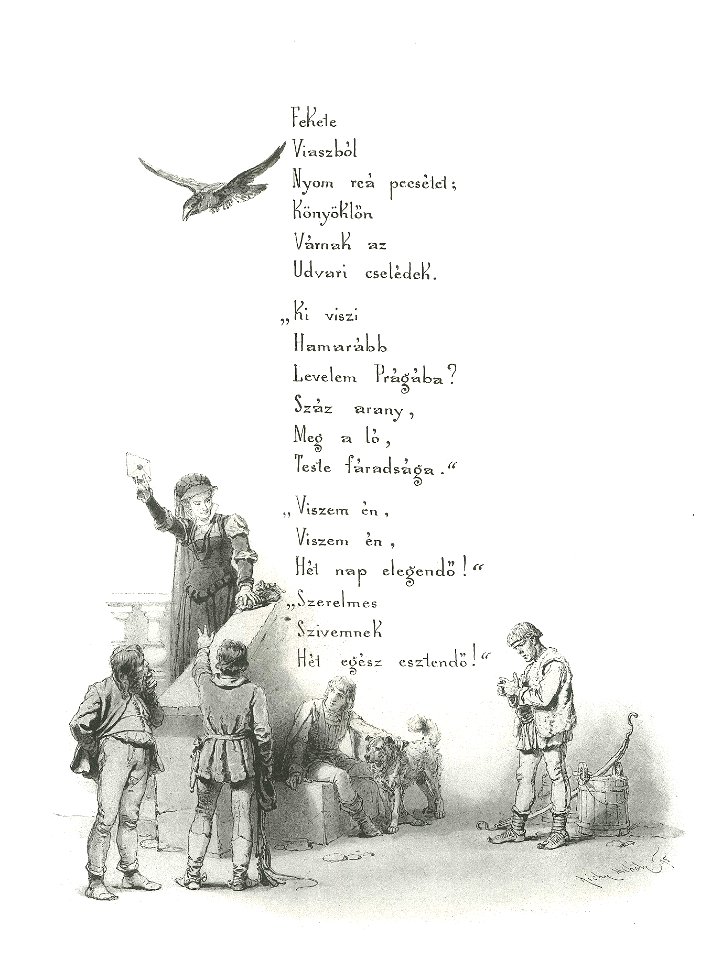 Fekete
Viaszból
Nyom reá pecsétet;
Könyöklőn
Várnak az
Udvari cselédek.
„Ki viszi
Hamarább
Levelem Prágába?
Száz arany,
Meg a ló,
Teste fáradsága.“
„Viszem én,
Viszem én,
Hét nap elegendő!“
„Szerelmes
Szivemnek
Hét egész esztendő!“